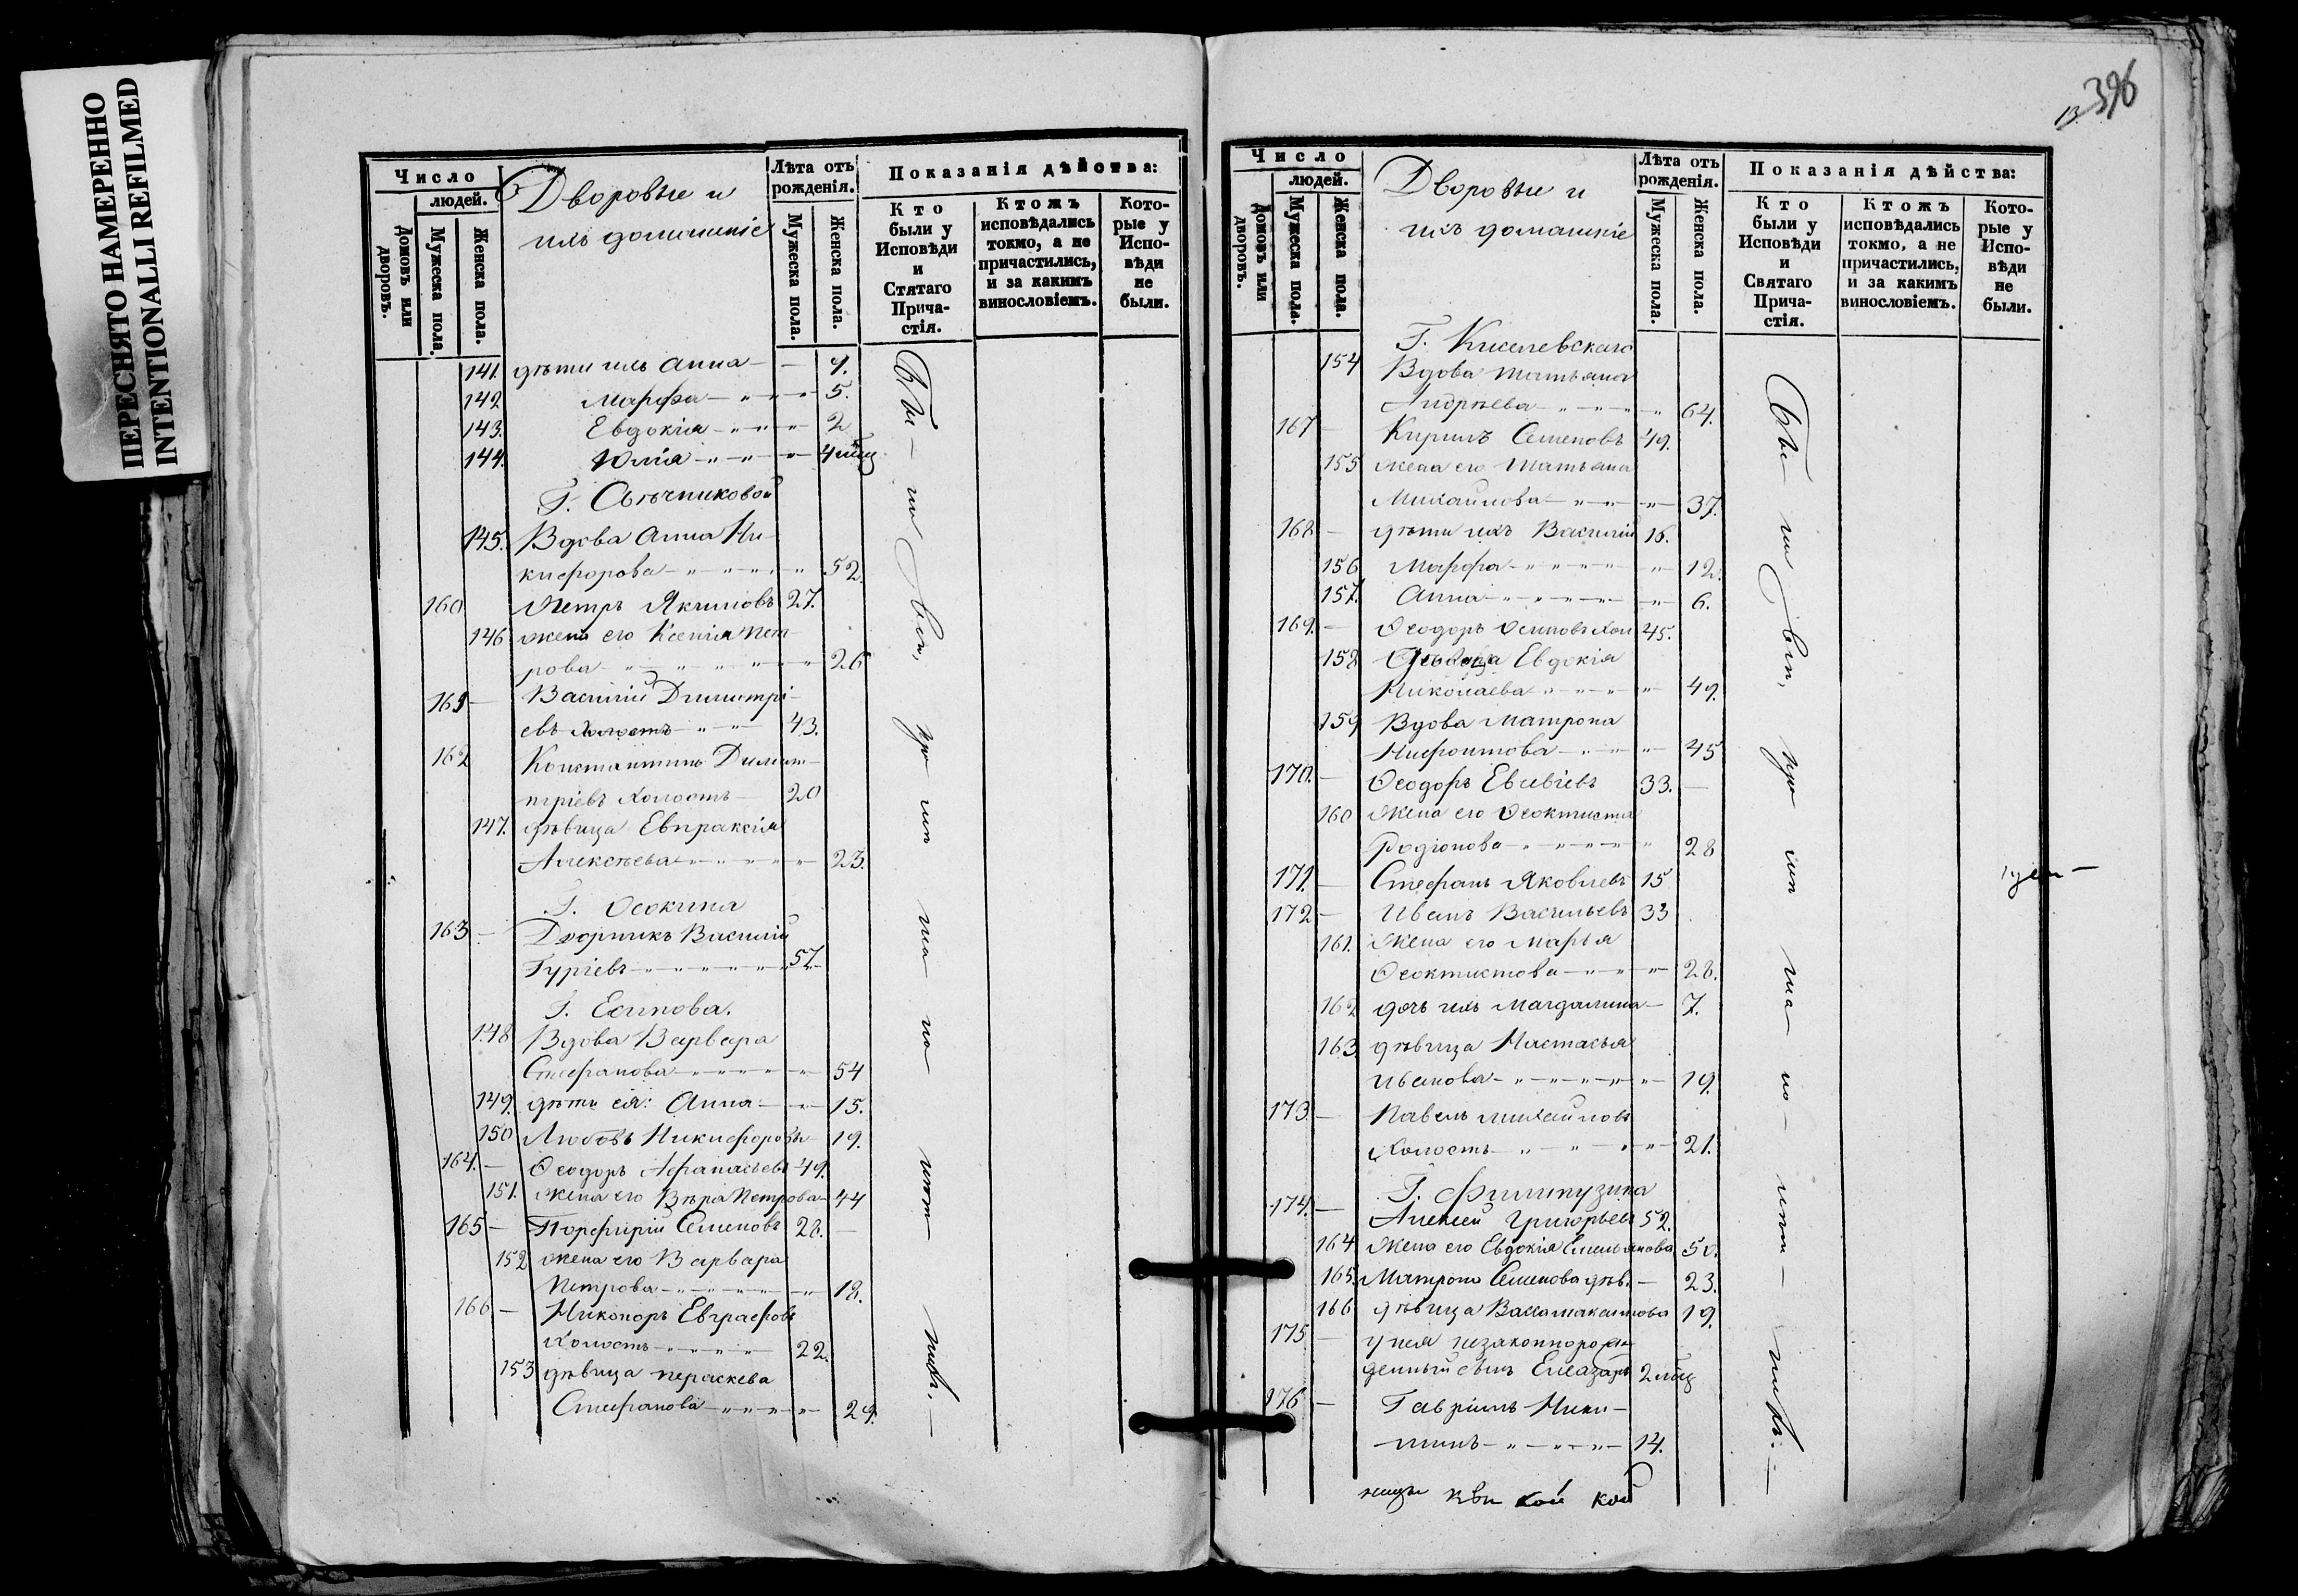 ПЕРЕСНЯТО НАМЕРЕННО
INTENTIONALLI REFILMED
Число
людей.
Домовъ или дворовъ.
Мужеска пола.
Женска пола.
Дворовые и
ихъ домашніе
Лѣта отъ рожденія.
Мужеска пола.
Женска пола.
Показанія дѣйства:
Кто были у Исповѣди и Стятаго Прича-стія.
Ктожъ исповѣдались токмо, а не причастились, и за какимъ винословіемъ.
Кото-рые у Испо-вѣди не были.
141. дѣти ихъ Анна — 9.
142 Марфа — 5.
143. Евдокія — 2
144. Юлія — 4 мѣц
Г. Свѣчниковой
145. Вдова Анна Ни-
кифорова — 52.
160 Петръ Якимовъ 27.
146 жена его Ксенія Пет-
рова — 26
161 — Василій Димитрі-
евъ холостъ — 43.
162 Константинъ Димит-
тріевъ холостъ — 20
147. дѣвица Евпраксія
Алексѣева — 23.
Г. Осокина
163 — Дворникъ Василій
Гуріевъ — 57.
Г. Есипова.
148 Вдова Варвара
Стефанова — 54
149. дѣти ея: Анна — 15.
150 Любовь Никифорова — 19.
164. — Ѳеодоръ Афанасьевъ 49.
151. жена его Вѣра Петрова — 44
165 — Порфирій Семеновъ 28. —
152 жена его Варвара
Петрова — 18.
166 — Никоноръ Евграфовъ
холостъ — 22.
153 дѣвица Параскева
Стефанова — 29.
396
Число
людей.
Домовъ или дворовъ.
Мужеска пола.
Женска пола.
Дворовые и
ихъ домашніе
Лѣта отъ рожденія.
Мужеска пола.
Женска пола.
Показанія дѣйства:
Кто были у Исповѣди и Святаго Прича-стія.
Ктожъ исповѣдались токмо, а не причастились, и за какимъ винословіемъ.
Кото-рые у Испо-вѣди не были.
Г. Киселевскаго
154 Вдова Татьяна
Андрѣева — 64.
167 — Кирилъ Семеновъ 49.
155 жена его Татьяна
Михайлова — 37.
168 — дѣти ихъ Василій 16.
156 Марфа — 12.
157. Анна — 6.
169. — Ѳеодоръ Осиповъ хол 45.
158 Евдокія
Николаева — 49.
159 Вдова Матрона
— 45
170. — Ѳеодоръ 33. —
160 жена его Ѳеоктиста
Родіонова — 28
171. — Стефанъ Яковлевъ 15
172 — Иванъ Васильевъ 33
161. Жена его Марья
Ѳеоктистова — 28.
162 дочь ихъ Магдалина — 7.
163 дѣвица Настасья
Иванова — 19.
173 — Павелъ Михайловъ
холостъ — 21.
174. — Алексей Григорьевъ 52.
164 Жена его Евдокія Емельянова 50.
165. Матрона Семенова дѣв. — 23.
166 дѣвица Васса Максимова 19.
175 — у нея незаконнорож-
денный сынъ Елеазаръ 2 мѣц
176 — Гавріилъ Ники-
тинъ — 14.